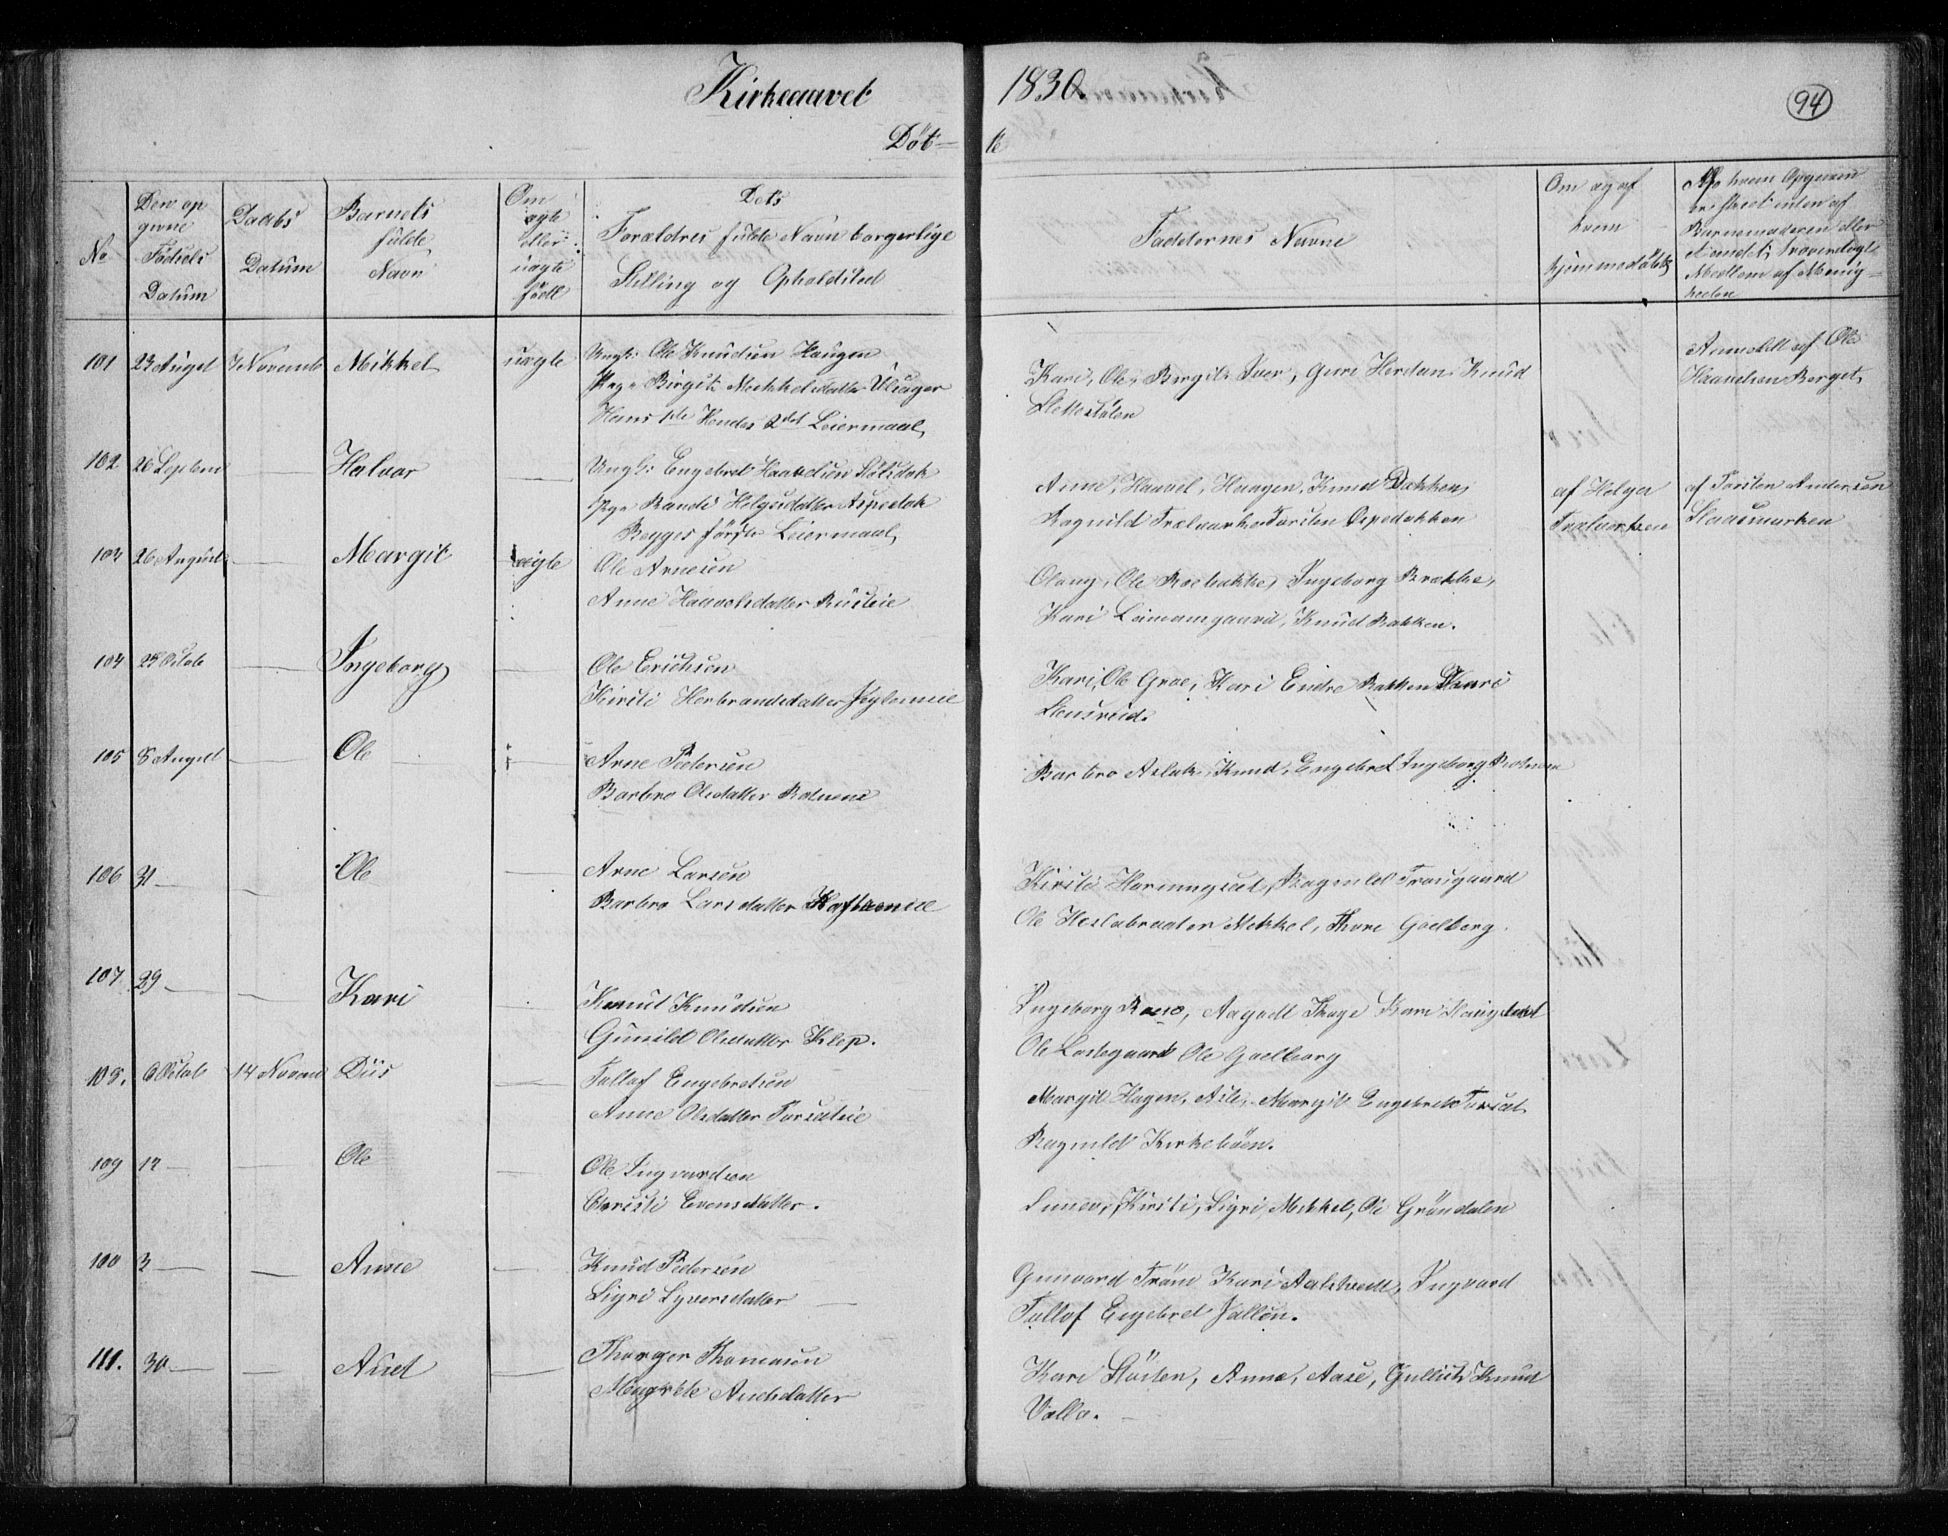 Kirkeaaret 1830.
94
Døb- te
No
Den op
givne
Fødsels
Datum
Daabs
Datum
Barnets
fulde
Navn
Om
ægte
eller
uægte
født
Dets
Forældres fulde Navn borgerlige
Stilling og Opholdsted
Faddernes Navne
Om og af
hvem
hjemmedøbt
Af hvem Opgivelsen
er skeet enten af
Barnemoderen eller
Mellem af Menig-
heden
101 23 August 7 Novemb Mikkel uægte Ungk: Ole Knudsen Haugen
Pige Birgit Mikkelsdatter Ulsager
Hans 1ste Hendes 2det Leiermaal,
Kari, Ole, Birgit Iver, Guri Herdan Knud
Slettestølen
Anmeldt af Ole
Haavelsen Berget,
102 26 Septem — Halvor — Ungk: Engebret Haavelsen
Pige Randi Helgesdatter Aspedok
Begges første Leiermaal,
Anne, Haavel, Haagen, Knud Bakken,
Ragnild Trælvarke Torsten Espedokken
af Helge
Trælvarken
af Torsten Andersen
Haasmarken
103 26 August — Margit ægte Ole Arnesen
Anne Haavelsdatter Rusteie
Olaug, Ole Roebakke, Ingeborg Brekke,
Kari Leimamgaard, Knud Bakken.
104 25 Octob — Ingeborg — Ole Erichsen
Kirsti Herbrandsdatter
Kari, Ole Grae, Kari Endre Bakken Kari
Stensrud.
105 8 August — Ole — Arne Pedersen
Barbro Olesdatter Rotneeie
Barbro Aslak, Knud, Engebret Ingeborg Rotneeie
106 31 — — Ole — Arne Larsen
Barbro Larsdatter
Kirsti Ragnild Traugaard
Ole Heslabraaten Mikkel, Thore Goelberg.
107 29 — — Kari — Knud Knudsen
Gunild Olesdatter Klep.
Ingeborg Roeie, Aagodt Thoge Kari
Ole Lostegaard Ole Goelberg
108. 6 Octob 14 Novem Siis Tollof Engebretsen
Anne Olesdatter Torseteie
Margit Hagen, Asle, Margit Engebret Torset
Ragnild Kirkebøen.
109 12 — — Ole — Ole Ingvardsen
Christi Evensdatter.
Kirsti, Sigri, Mikkel, Ole Grøndalen
100 3 — — Anne — Knud Pedersen
Sigri Syversdatter —
Gunvard Trøim Kari Ingvard
Tollof Engebret
111. 30 — — Auel — Thorger Thomasen
Margrete
Kari Støiten, Anne, Aase, Gullick Knud
Valla. —